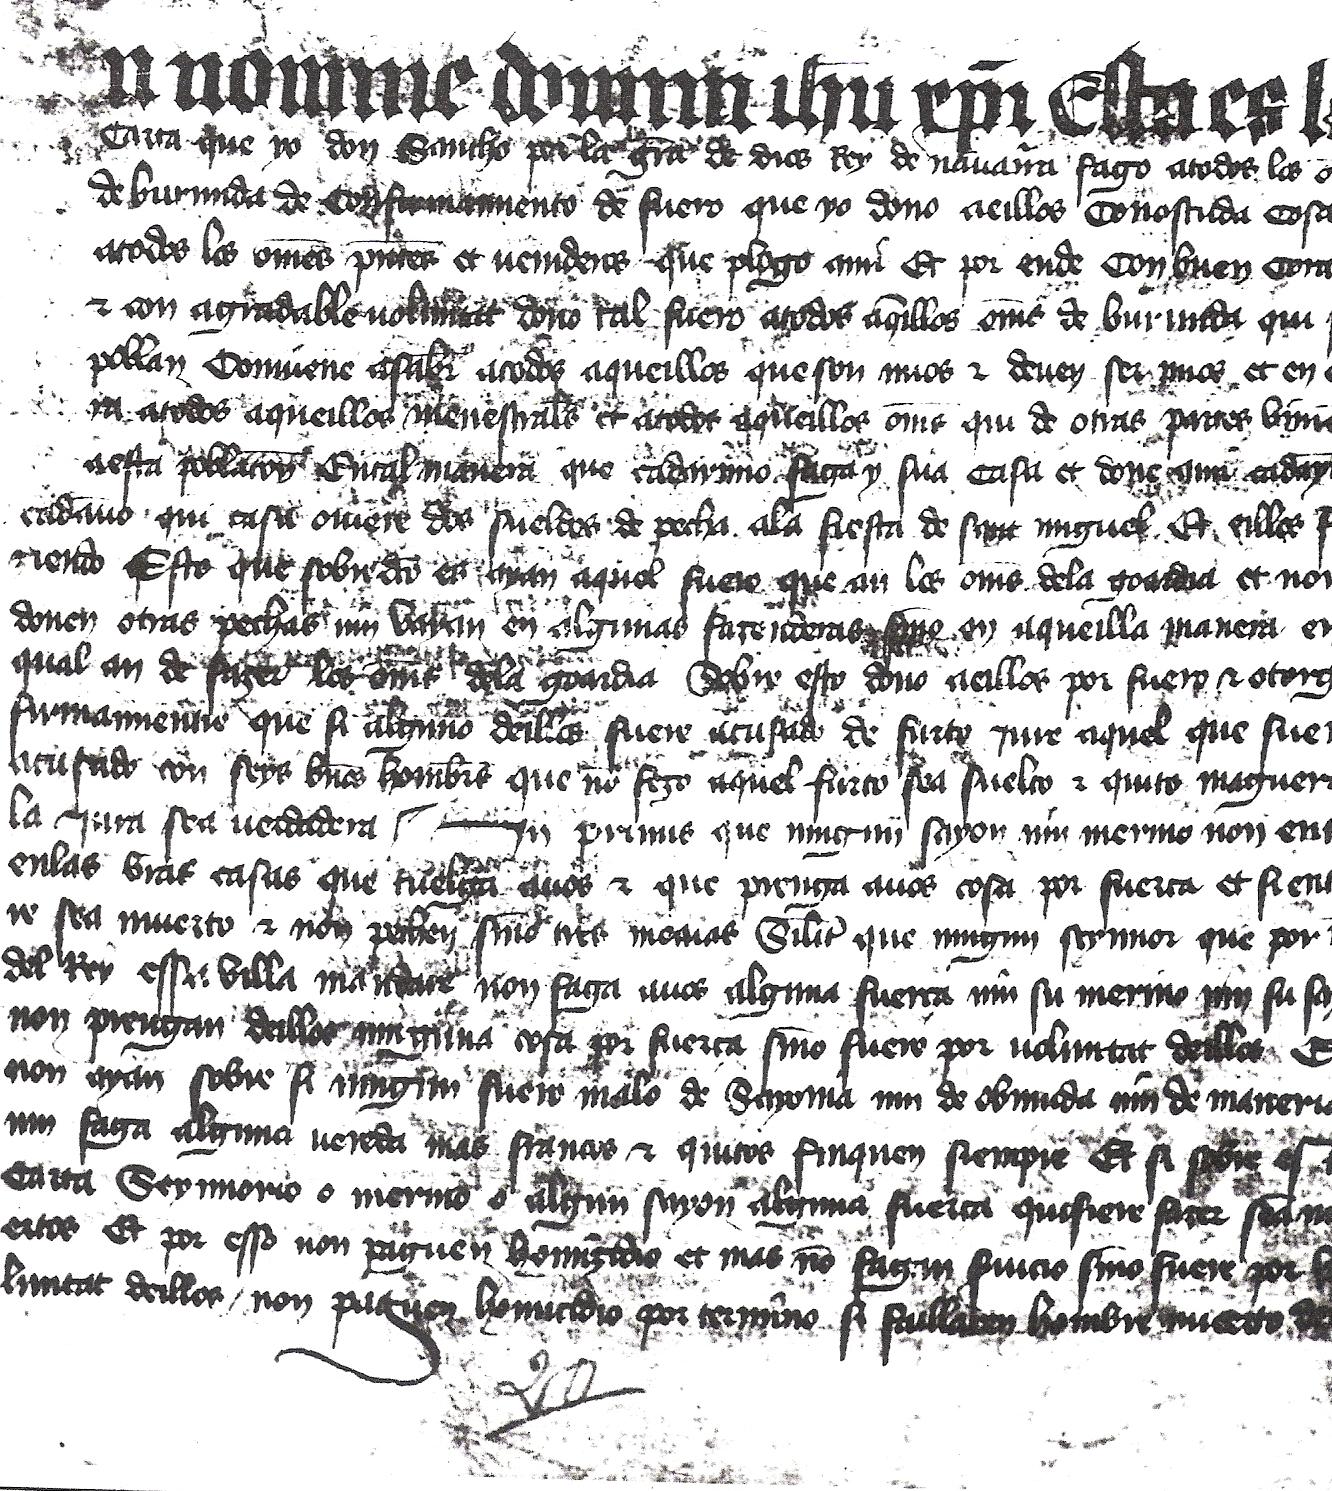 n nomine domini ihu xpi Esta es l
Carta que yo don Sancho por la gra de dios Rey de nauarra fago atodos los o
de burunda de Confirmamiento de fuero que yo dono aeillos Conoscuda cosa
atodos los omes pntes et uenideros que plogo ami Et por ende Con buen cora
& con agradable voluntat dono tal fuero atodos aqillos omes de burunda qui
poblan Conuiene asaber atodos aqueillos que son mios & deuen ser mios et en
ra atodos aqueillos menestrales et atodos aqueillos omes qui de otras partes vini
aesta poblacion En tal manera que cadauno faga y sua casa et done ami caday
cadauno qui casa ouiere dos sueldos de pecha ala fiesta de sant miguel Et eillos
riendo Esto que sobredco es ayan aquel fuero que an los omes dela goardia et non
donen otras pechas nin vayan en algunas fazenderas sino en aqueilla manera en
qual an de fazer los omes dela goardia Sobre esto dono aeillos por fuero & otorg
firmamientre que si alguno deillos fuere acusado de furto iure aquel que fuer
acusado con seys bnos hombres que no fezo aquel furto sea suelto & quito maguera
la iura sea verdadera In primis que ningun sayon nin merino non ent
enlas vras casas que tuelga auos & que prenga auos cosa por fuerca et si ent
re sea muerto & non pechen sino tres meaias Silir que ningun seynnor que por
del Rey essa villa mandare non faga auos alguna fuerca nin su merino nin su sa
non prengan deillos ninguna cosa por fuerca sino fuere por voluntat deillos E
non ayan sobre si ningun fuero malo de Sayonia nin de abnuda nin de maneria
nin faga alguna vereda mas francos & quitos finquen siempre Et si sobre est
Carta Seynnorio o merino o algun sayon alguna fuerca quisiere fazer sean m
ertos Et por esso non paguen homigidio et mas no fagan iuicio sino fuere por vo
luntat deillos non paguen homicidio por termino si faillaren hombre muerto de